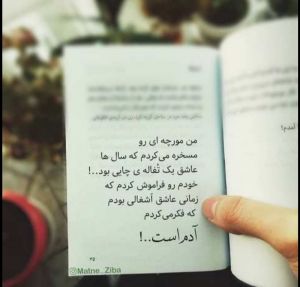 من مورچه ای رو
مسخره می‌کردم که سال ها
عاشق یک تُفاله ی چایی بود..!
خودم رو فراموش کردم که
زمانی عاشق آشغالی بودم
که فکرمی‌کردم
آدم است..!
Matne_Ziba